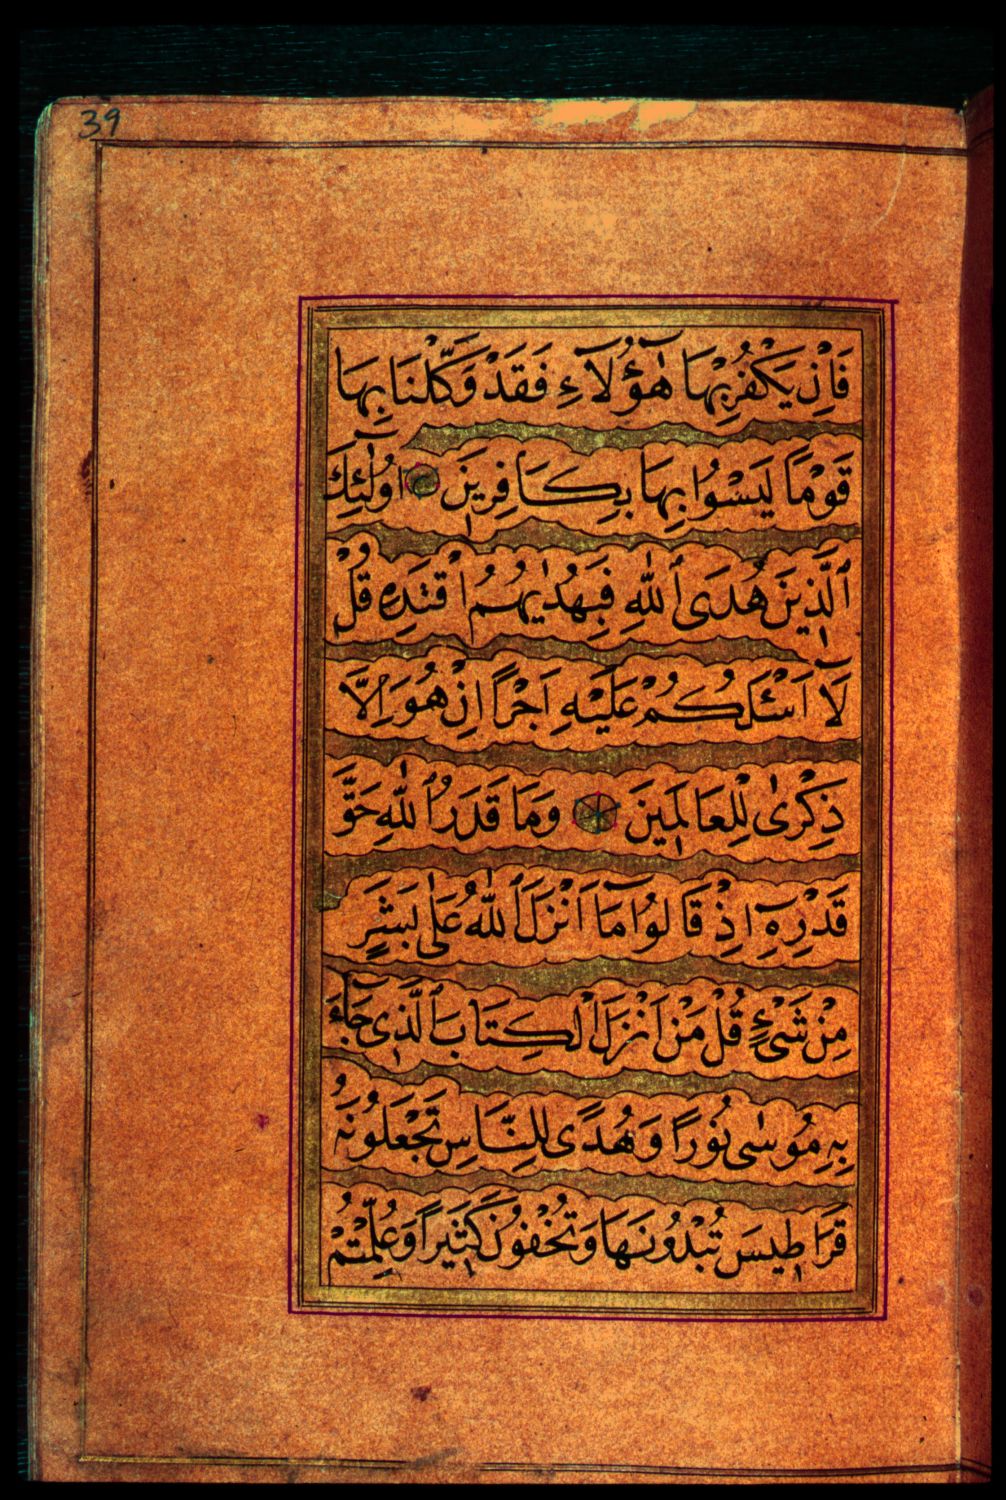 39
فَاِنْ يَكْفُرْبِهَا هٰٓؤُلَآءِ فَقَدْ وَكَّلْنَا بِهَا
قَوْمًا لَيْسُوا بِهَا بِكَافِرِينَ اُولٰٓئِكَ
ٱلَّذِينَ هُدَى ٱللّٰهِ فَبِهُدٰيهُمُ اقْتَدِهِ قُلْ
لَٓا اَسْئَلُكُمْ عَلَيْهِ اَجْرًا اِنْ هُوَ اِلَّا
ذِكْرٰى لِلْعَالَمِينَ وَمَا قَدَرُ ٱللّٰهَ حَقَّ
قَدْرِهِٓ اِذْ قَالُوا مَٓا اَنْزَلَ ٱللّٰهُ عَلٰى بَشَرٍ
مِنْ شَىْءٍ قُلْ مَنْ اَنْزَلَ الْكِتَابَ ٱلَّذِى جَٓاءَ
بِهِ مُوسٰى نُورًا وَهُدًى لِلنَّاسِ تَجْعَلُونَهُ
قَرَاطِيسَ تُبْدُونَهَا وَتُخْفُونَ كَثِيرًا وَعُلِّمْتُمْ